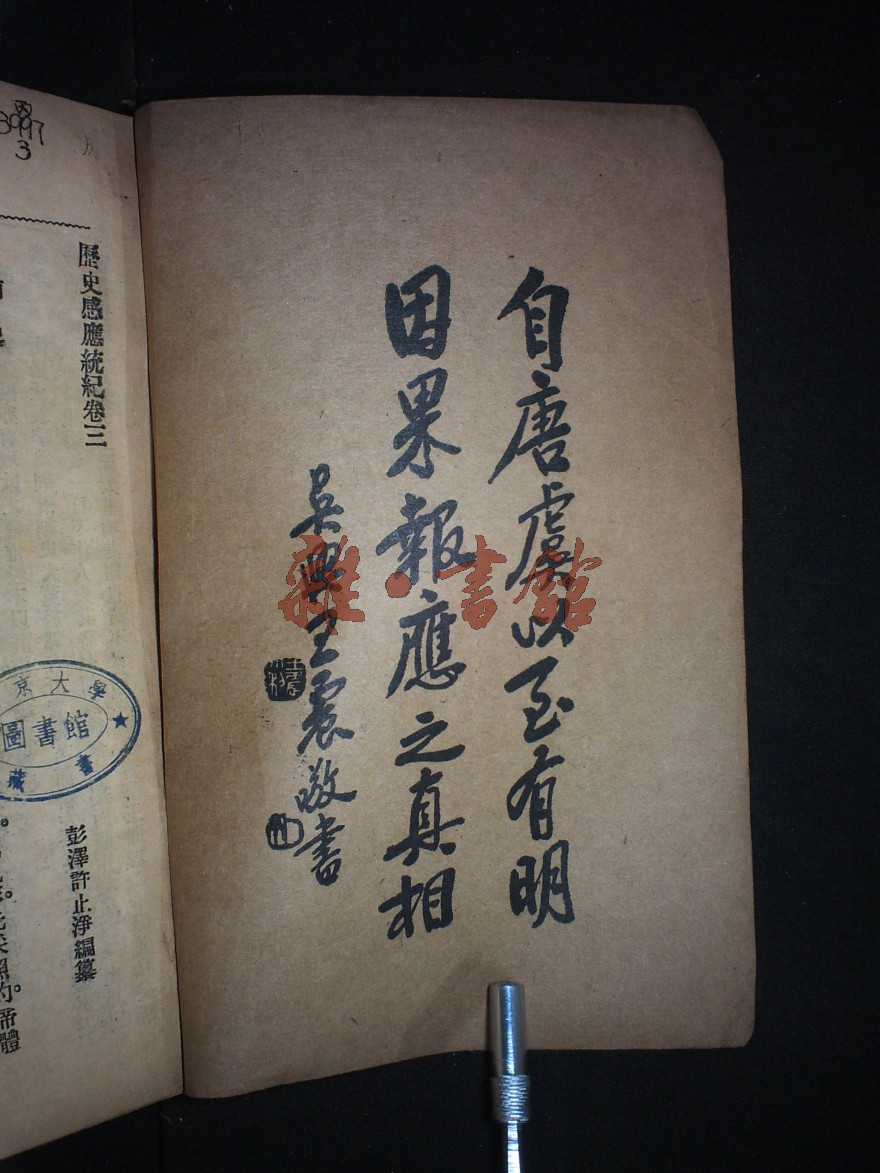 自唐虞以至有明
因果報應之真相
吳興王震敬書
雜·書館
丙
3997
3
歷史感應統紀卷三
京大學
圖書館
藏書
彭澤許止淨編纂